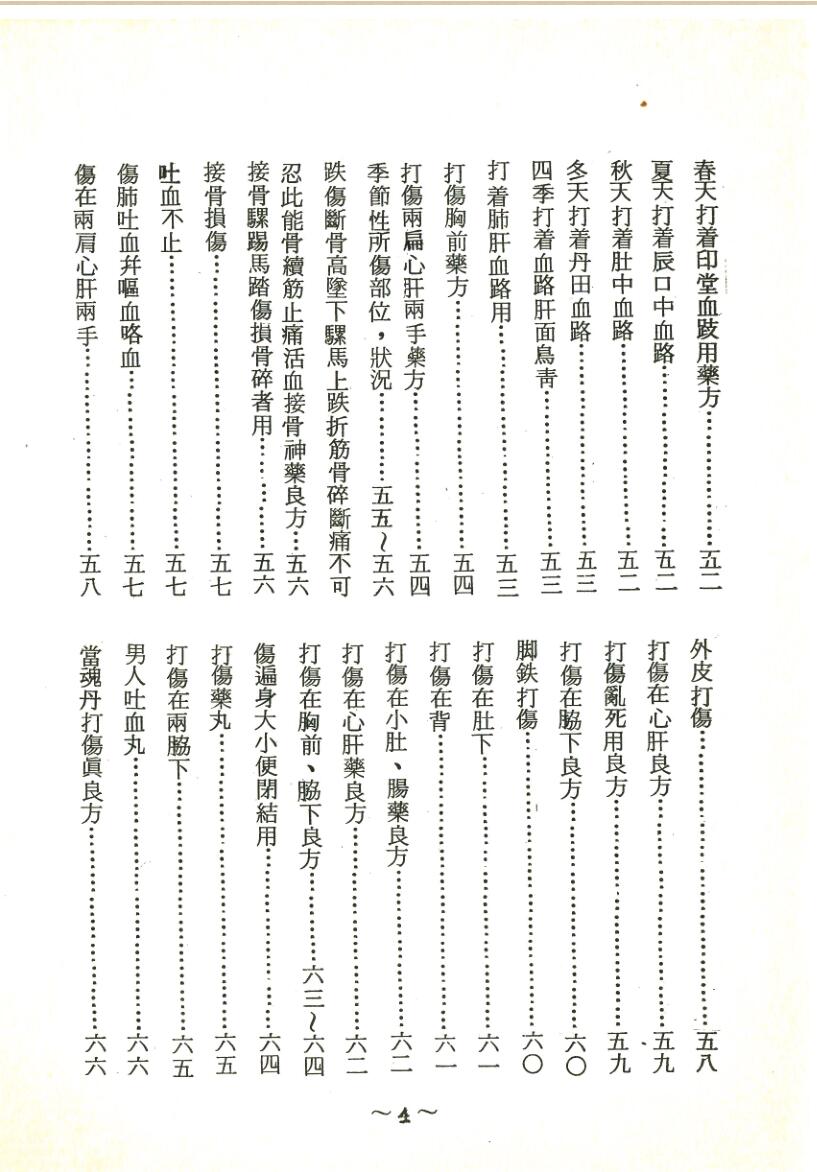 春天打着印堂血跂用藥方⋯⋯⋯⋯五二
夏天打着辰口中血路⋯⋯⋯⋯五二
秋天打着肚中血路⋯⋯⋯⋯五二
冬天打着丹田血路⋯⋯⋯⋯五三
四季打着血路肝面鳥靑⋯⋯⋯⋯五三
打着肺肝血路用⋯⋯⋯⋯五三
打傷胸前藥方⋯⋯⋯⋯五四
打傷兩扁心肝兩手藥方⋯⋯⋯⋯五四
季節性所傷部位，狀況⋯⋯⋯⋯五五～五六
跌傷斷骨高墜下騾馬上跌折筋骨碎斷痛不可
忍此能骨續筋止痛活血接骨神藥良方⋯五六
接骨騾踢馬踏傷損骨碎者用⋯⋯⋯⋯五六
接骨損傷⋯⋯⋯⋯五七
吐血不止⋯⋯⋯⋯五七
傷肺吐血幷嘔血咯血⋯⋯⋯⋯五七
傷在兩肩心肝兩手⋯⋯⋯⋯五八
外皮打傷⋯⋯⋯⋯五八
打傷在心肝良方⋯⋯⋯⋯五九
打傷亂死用良方⋯⋯⋯⋯五九
打傷在脇下良方⋯⋯⋯⋯六〇
脚鉄打傷⋯⋯⋯⋯六〇
打傷在肚下⋯⋯⋯⋯六一
打傷在背⋯⋯⋯⋯六一
打傷在小肚、腸藥良方⋯⋯⋯⋯六二
打傷在心肝藥良方⋯⋯⋯⋯六二
打傷在胸前、脇下良方⋯⋯⋯⋯六三～六四
傷遍身大小便閉結用⋯⋯⋯⋯六四
打傷藥丸⋯⋯⋯⋯六五
打傷在兩脇下⋯⋯⋯⋯六五
男人吐血丸⋯⋯⋯⋯六六
當魂丹打傷眞良方⋯⋯⋯⋯六六
～4～